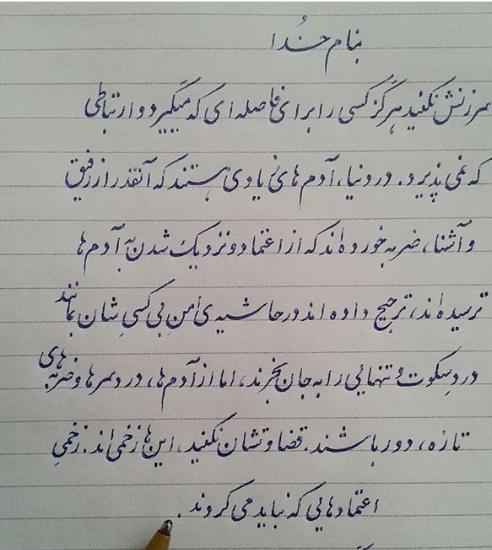 بنام خدا
سرزنش نکنید هرگز کسی را برای فاصله ای که میگیرد و ارتباطی
که نمی پذیرد. در دنیا، آدم های زیادی هستند که آنقدر از رفیق
و آشنا، ضربه خورده اند که از اعتماد و نزدیک شدن به آدم ها
ترسیده اند، ترجیح داده اند در حاشیه ی امن بی کسی شان بمانند
درد سکوت و تنهایی را به جان بخرند، اما از آدم ها، دردسرها و ضربه های
تازه، دور باشند. قضاوتشان نکنید، این ها زخمی اند. زخمیِ
اعتمادهایی که نباید می کردند.